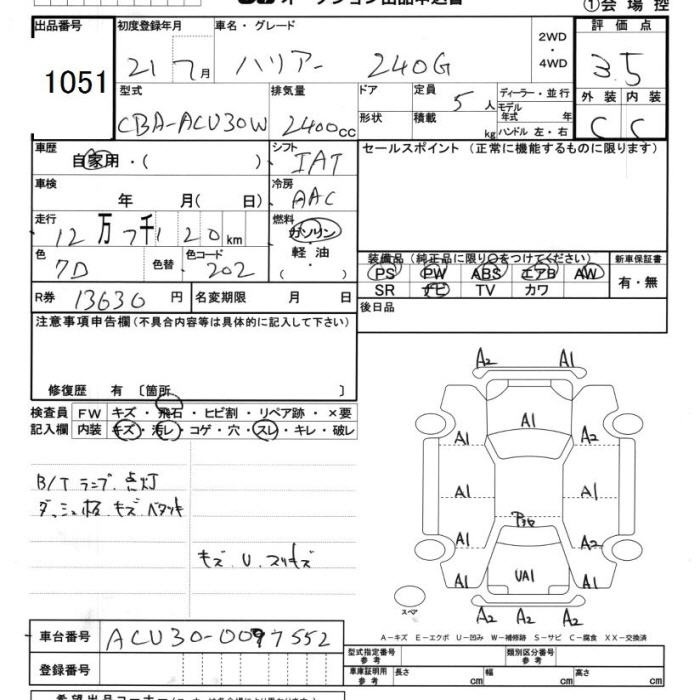 オークション出品申込書
①会場控
出品番号 初度登録年月 車名・グレード 評価点
1051 21 7月 ハリアー 240G 2WD・4WD 3.5
型式 排気量 ドア 定員 5人 ディーラー・並行 外装 内装
CBA-ACU30W 2400cc 形状 積載 kg モデル年式 年 ハンドル 左・右 C C
車歴 自家用・( ) シフト IAT セールスポイント(正常に機能するものに限ります)
車検 年 月(日) 冷房 AAC
走行 12万7千120km 燃料 ガソリン・軽油・( )
色 7D 色替 色コード 202
装備品(純正品に限り○をつけてください) 新車保証書
PS PW ABS エアB AW 有・無
SR ナビ TV カワ
R券 13630円 名変期限 月 日 後日品
注意事項申告欄(不具合内容等は具体的に記入して下さい)
修復歴 有 〔箇所 〕
検査員 FW キズ・飛石・ヒビ割・リペア跡・×要
記入欄 内装 キズ・汚レ・コゲ・穴・スレ・キレ・破レ
B/Tランプ 点灯
ダッシュ板 キズ ベタツキ
キズ U スリキズ
A2 A1
A1
A1 A2
A1 A1
A1 A2
A1 UA1 A1
A2 A2 A2
スペア
A－キズ E－エクボ U－凹み W－補修跡 S－サビ C－腐食 XX－交換済
車台番号 ACU30-0097552
登録番号
型式指定番号 参考 類別区分番号 参考
車庫証明用 参考 長さ cm 幅 cm 高さ cm
希望出品コーナー